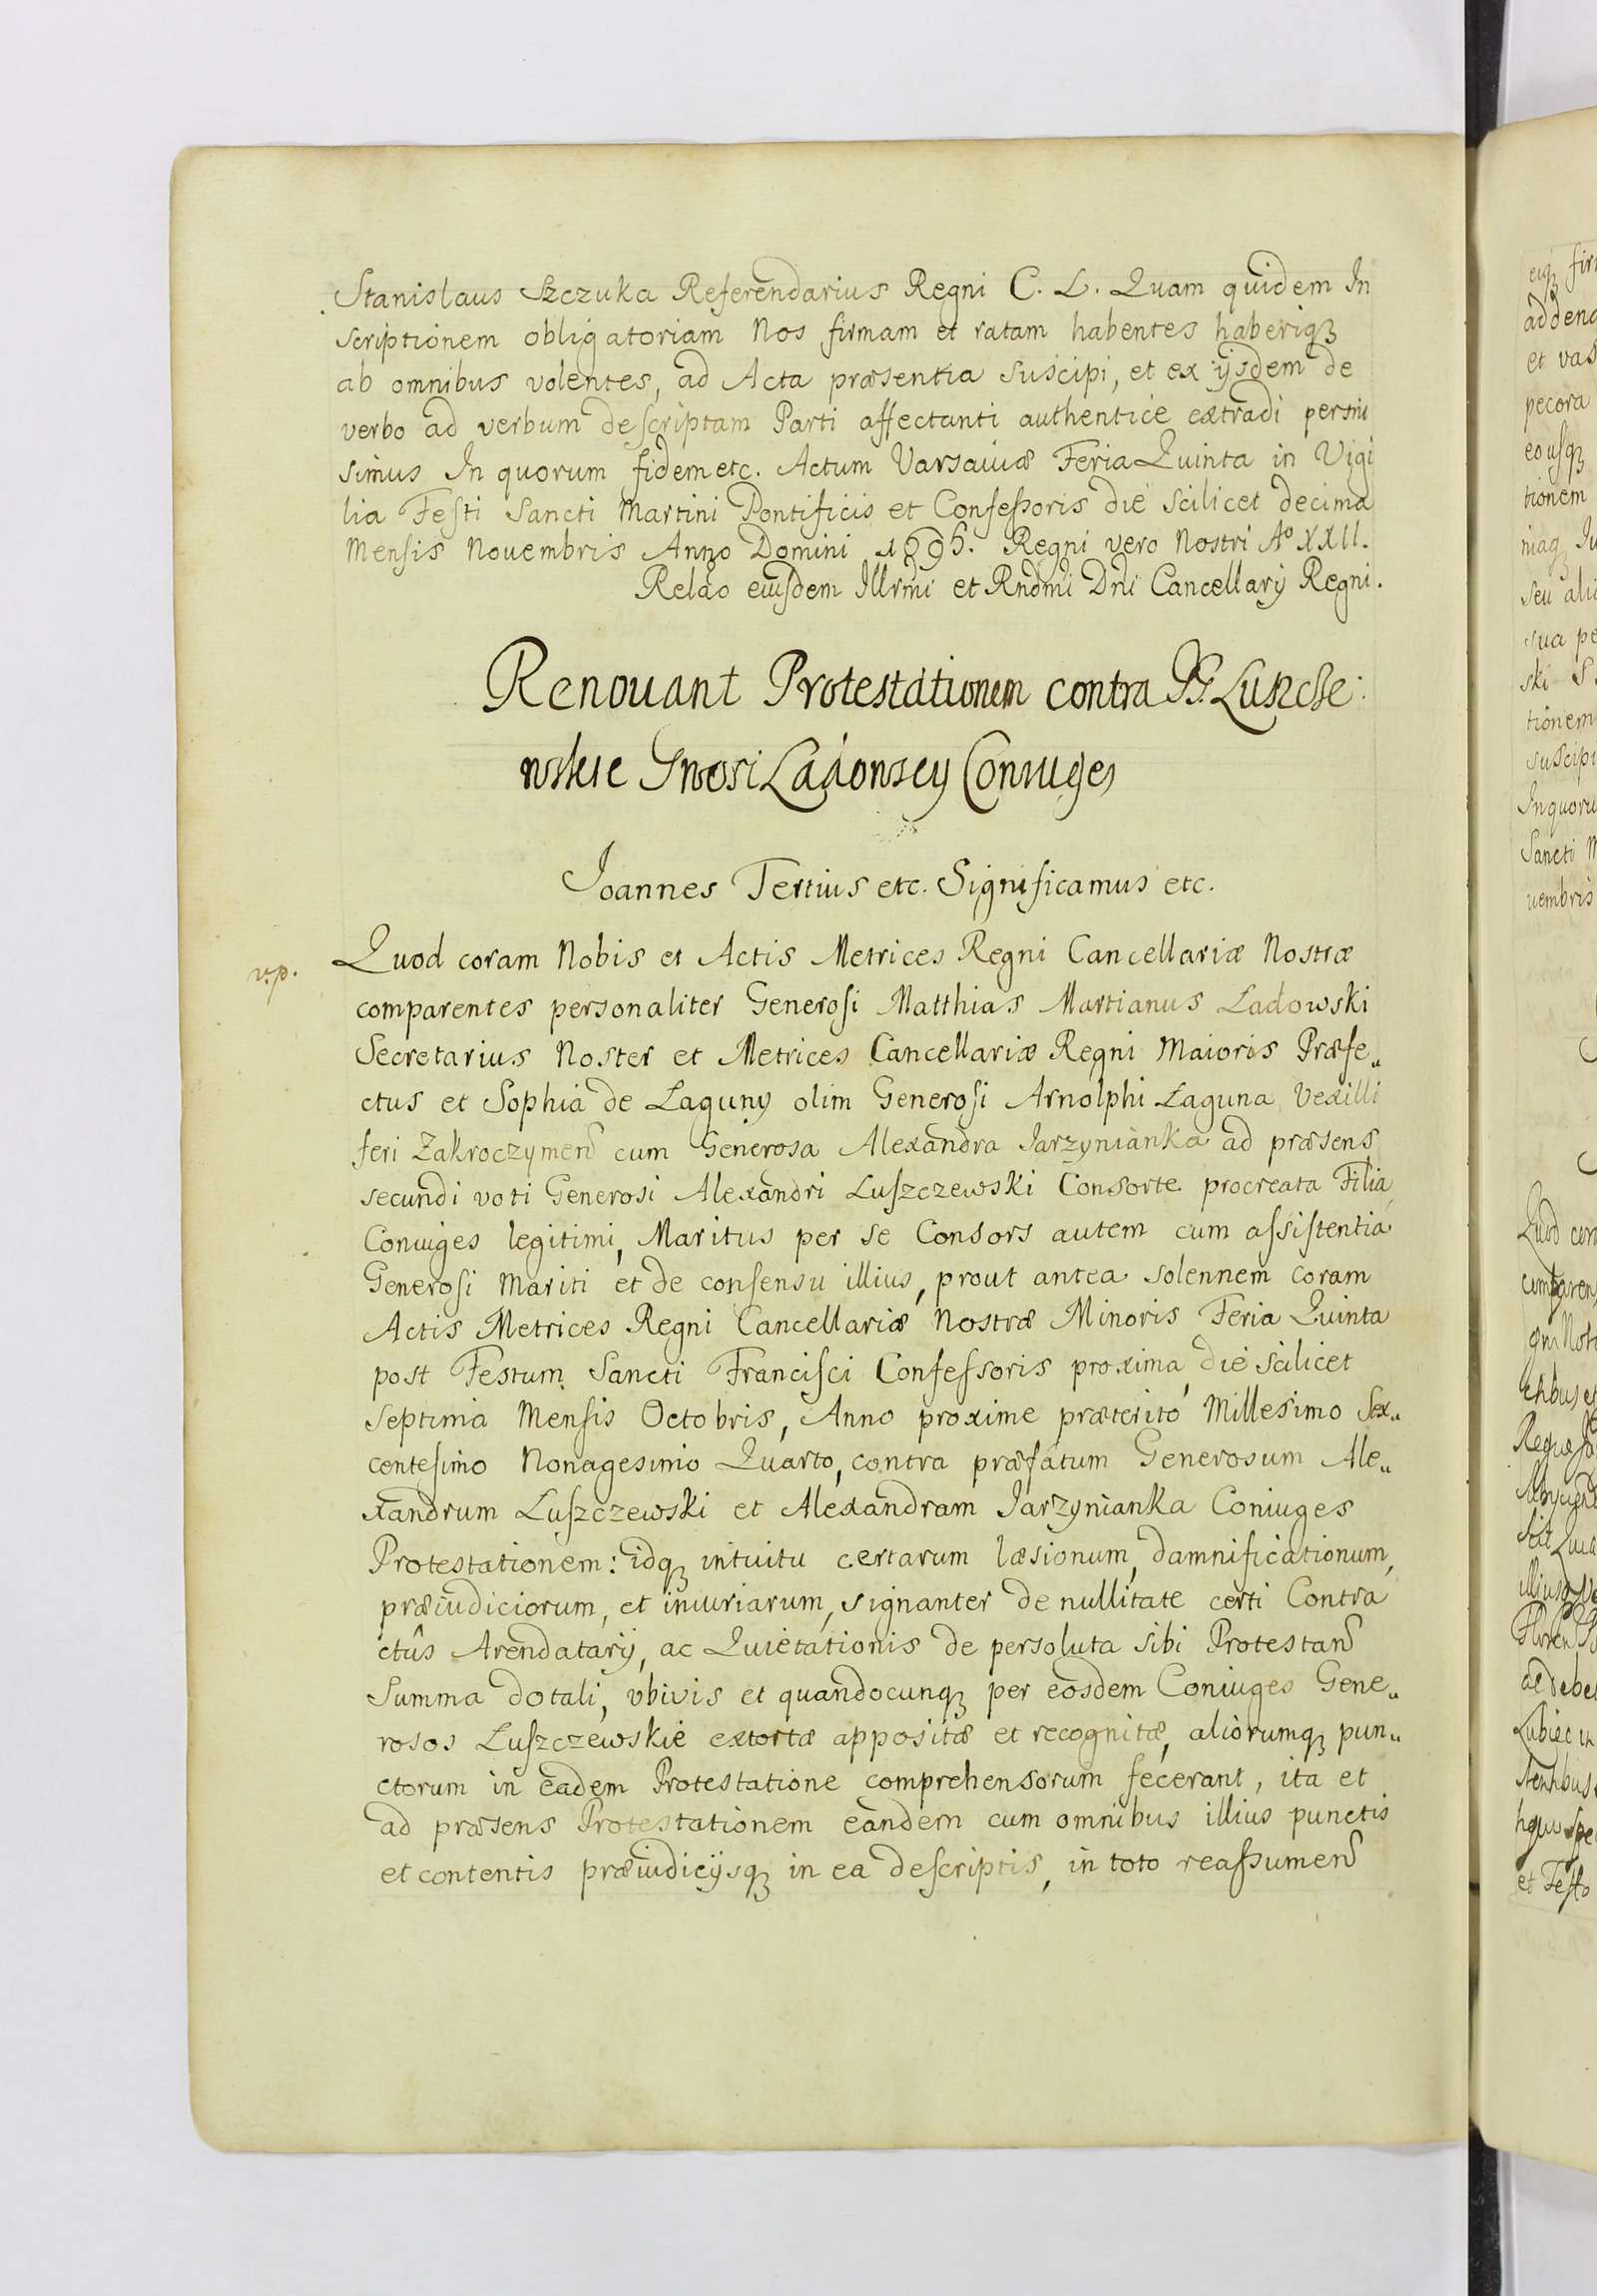 Stanislaus Szczuka Referendarius Regni C. L. Quam quidem In
scriptionem obligatoriam Nos firmam et ratam habentes haberiqꝫ
ab omnibus volentes, ad Acta præsentia suscipi, et ex ijsdem de
verbo ad verbum descriptam Parti affectanti authentice extradi permi
simus In quorum fidem etc. Actum Varsaviæ Feria Quinta in Vigi
lia Festi Sancti Martini Pontificis et Confessoris die scilicet decima
Mensis Nouembris Anno Domini 1695. Regni vero Nostri Aº XXII.
Relao eiusdem Illrmi et Rndmi Dni Cancellarij Regni.
Renouant Protestationem contra GG. Luszcze:
wskie Gnosi Ladowscy Coniuges
Joannes Tertius etc. Significamus etc.
v.p.
Quod coram Nobis et Actis Metrices Regni Cancellariæ Nostræ
comparentes personaliter Generosi Matthias Martianus Ladowski
Secretarius Noster et Metrices Cancellariæ Regni Maioris Præfe„
ctus et Sophia de Laguny olim Generosi Arnolphi Laguna Vexilli
feri Zakroczymen cum Generosa Alexandra Jarzynianka ad præsens
secundi voti Generosi Alexandri Luszczewski Consorte procreata Filia
Coniuges legitimi, Maritus per se Consors autem cum assistentia
Generosi Mariti et de consensu illius, prout antea solennem coram
Actis Metrices Regni Cancellariæ Nostræ Minoris Feria Quinta
post Festum Sancti Francisci Confessoris proxima, die scilicet
septima Mensis Octobris, Anno proxime præterito Millesimo Sex„
centesimo Nonagesimo Quarto, contra præfatum Generosum Ale„
xandrum Luszczewski et Alexandram Jarzynianka Coniuges
Protestationem: idqꝫ intuitu certarum læsionum, damnificationum,
præiudiciorum, et iniuriarum, signanter de nullitate certi Contra
ctûs Arendatarij, ac Quietationis de persoluta sibi Protestan
Summa dotali, vbivis et quandocunqꝫ per eosdem Coniuges Gene„
rosos Luszczewskie extortæ appositæ et recognitæ, aliorumqꝫ pun„
ctorum in eadem Protestatione comprehensorum fecerant, ita et
ad præsens Protestationem eandem cum omnibus illius punctis
et contentis præiudicijsqꝫ in ea descriptis, in toto reassumen